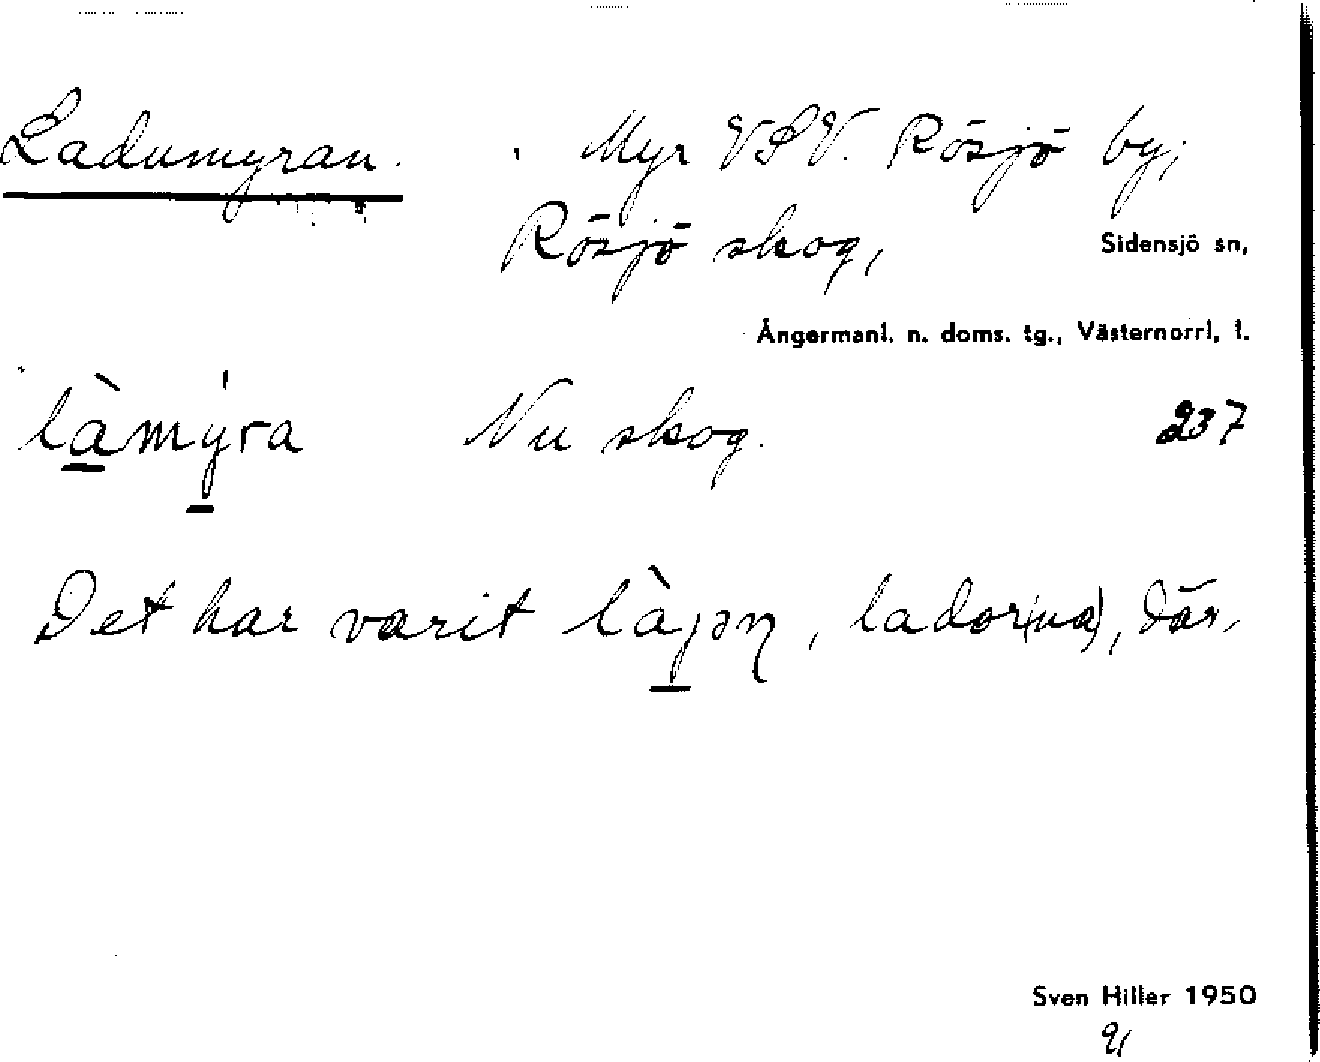 Ladumyran. Myr VSV. Rösjö by,
Rösjö skog, Sidensjö sn,
Ångermanl. n. doms. tg., Västernorrl. l.
làmýra Nu skog. 237
Det har varit làjən, lador(na), där.
Sven Hiller 1950